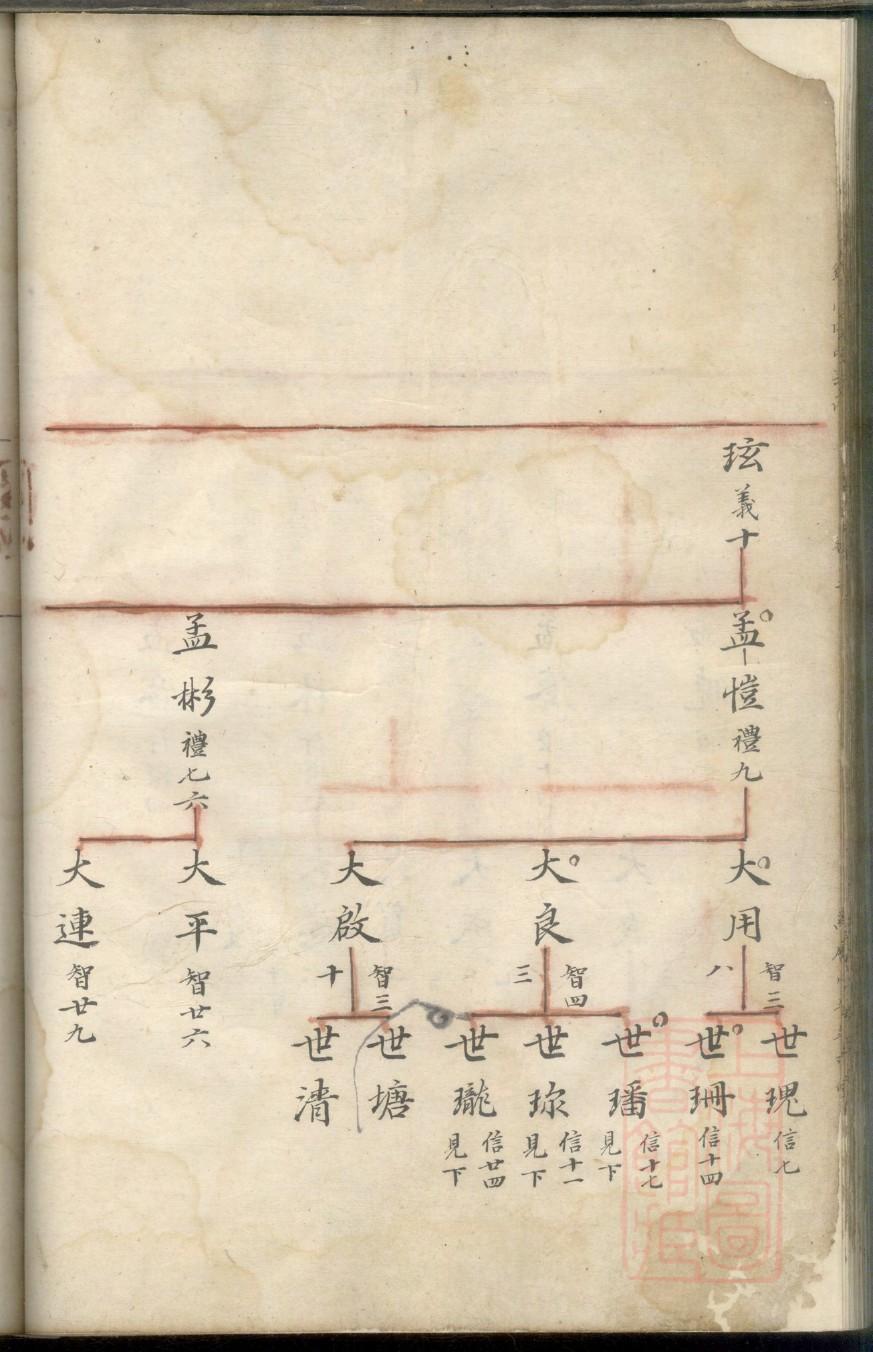 玹
義十
孟愷
禮九
孟彬
禮七六
大用
智三
八
大良
智四
三
大啟
智三
十
大平
智廿六
大連
智廿九
世瑰
信七
世珊
信十四
世璠
信十七
見下
世珎
信十一
見下
世瓏
信廿四
見下
世塘
世清
上海圖
書館藏